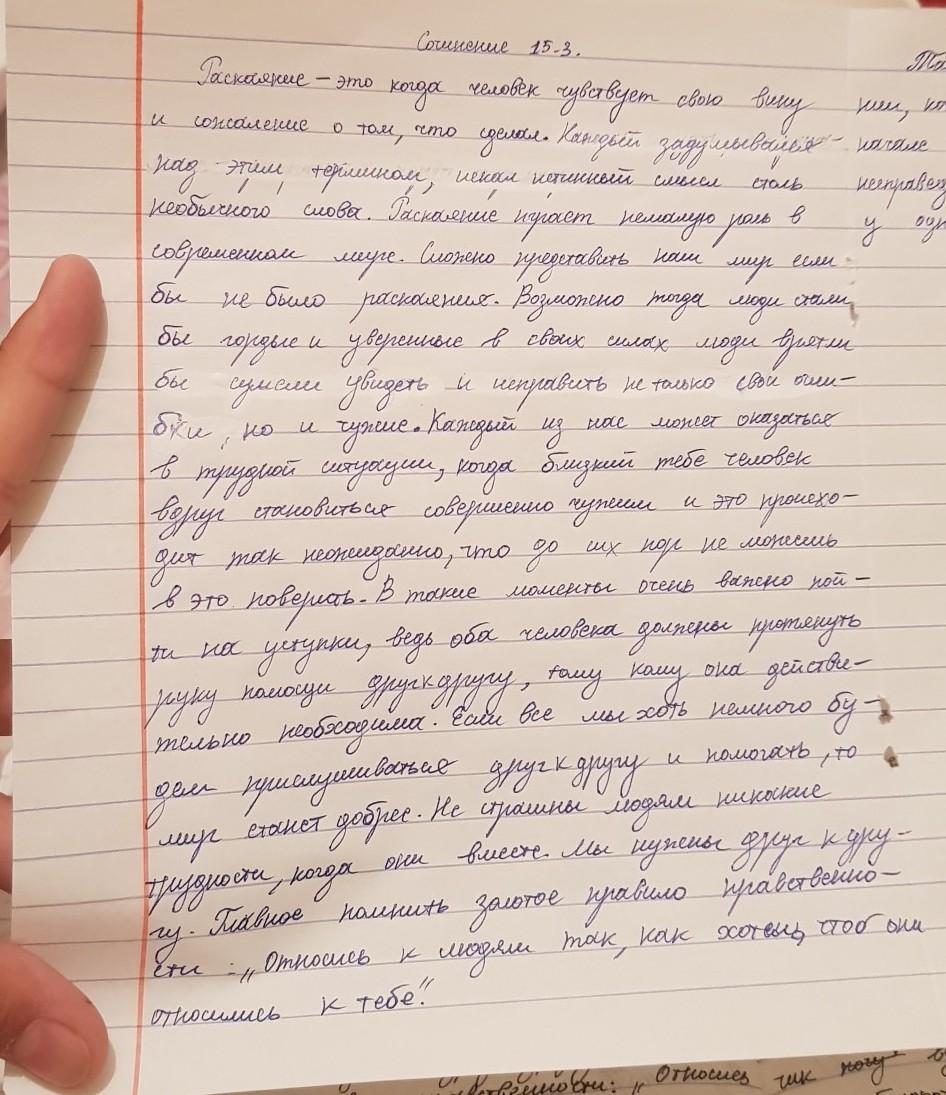 Сочинение 15-3.
Раскаяние – это когда человек чувствует свою вину
и сожаление о том, что сделал. Каждый задумывался
над этим термином, искал истинный смысл столь
необычного слова. Раскаяние играет немалую роль в
современном мире. Сложно представить наш мир если
бы не было раскаяния. Возможно тогда люди стали
бы гордые и уверенные в своих силах люди врятли
бы сумели увидеть и исправить не только свои оши-
бки, но и чужие. Каждый из нас может оказаться
в трудной ситуации, когда близкий тебе человек
вдруг становиться совершенно чужим и это происхо-
дит так неожиданно, что до сих пор не можешь
в это поверить. В такие моменты очень важно пой-
ти на уступки, ведь оба человека должны протянуть
руку помощи друг к другу, тому кому она действи-
тельно необходима. Если все мы хоть немного бу-
дем прислушиваться друг к другу и помогать, то
мир станет добрее. Не страшны людям никакие
трудности, когда они вместе. Мы нужны друг к дру-
гу. Главное помнить золотое правило нравственно-
сти: „Относись к людям так, как хотешь, чтоб они
относились к тебе."
нии,
начале
несправед
у
„Относись так